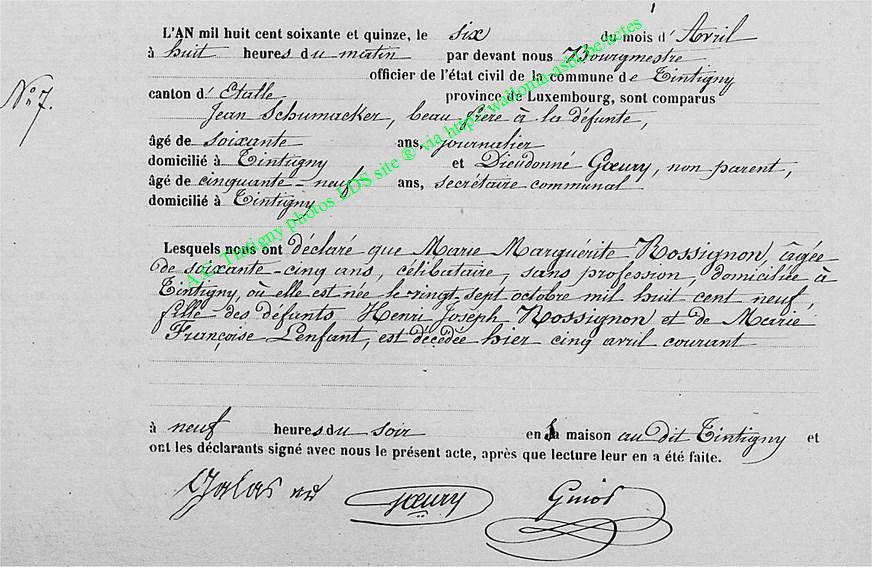 L'AN mil huit cent soixante et quinze, le six du mois d'Avril
à huit heures du matin par devant nous Bourgmestre
officier de l'état civil de la commune de Tintigny
canton d'Etalle province de Luxembourg, sont comparus
Jean Schumacker, beau frère à la défunte,
âgé de soixante ans, journalier
domicilié à Tintigny et Dieudonné Goeury, non parent,
âgé de cinquante-neuf ans, secrétaire communal
domicilié à Tintigny
N° 7.
Lesquels nous ont déclaré que Marie Marguérite Rossignon, âgée
de soixante-cinq ans, célibataire, sans profession, domiciliée à
Tintigny, où elle est née le vingt-sept octobre mil huit cent neuf,
fille des défunts Henri Joseph Rossignon et de Marie
Françoise Lenfant, est décédée hier cinq avril courant
à neuf heures du soir en sa maison au dit Tintigny et
ont les déclarants signé avec nous le présent acte, après que lecture leur en a été faite.
Goeury
A.G. Tintigny photos LDS site ® via http://wallonia-asbl.be/actes